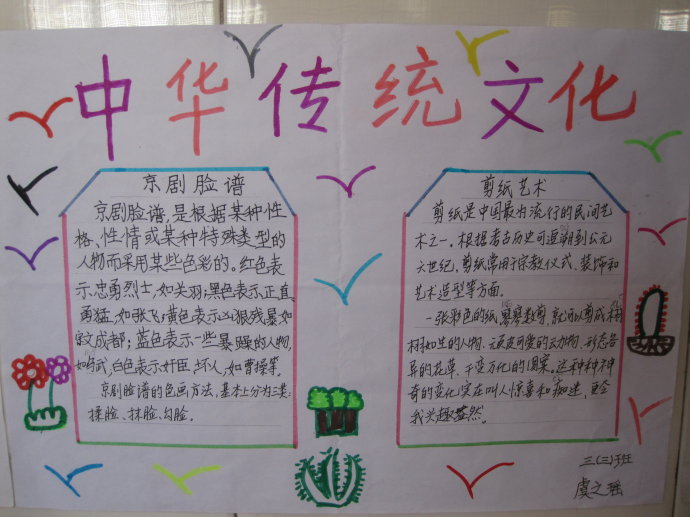 中华传统文化
京剧脸谱
京剧脸谱,是根据某种性
格、性情或某种特殊类型的
人物而采用某些色彩的。红色表
示忠勇烈士,如关羽;黑色表示正直
勇猛,如张飞;黄色表示凶狠残暴如
宇文成都;蓝色表示一些暴躁的人物,
如 白色表示奸臣、坏人,如曹操等。
京剧脸谱的色画方法,基本上分为三类:
揉脸、抹脸、勾脸。
剪纸艺术
剪纸是中国最为流行的民间艺
术之一,根据考古历史可追溯到公元
六世纪,剪纸常用于宗教仪式、装饰和
艺术造型等方面。
一张彩色的纸,寥寥数剪,就可以剪成栩
栩如生的人物、活泼可爱的动物、形态各
异的花草,千变万化的图案。这种种神
奇的变化实在叫人惊喜和痴迷,更令
我兴趣盎然。
三(三)班
虞之瑶